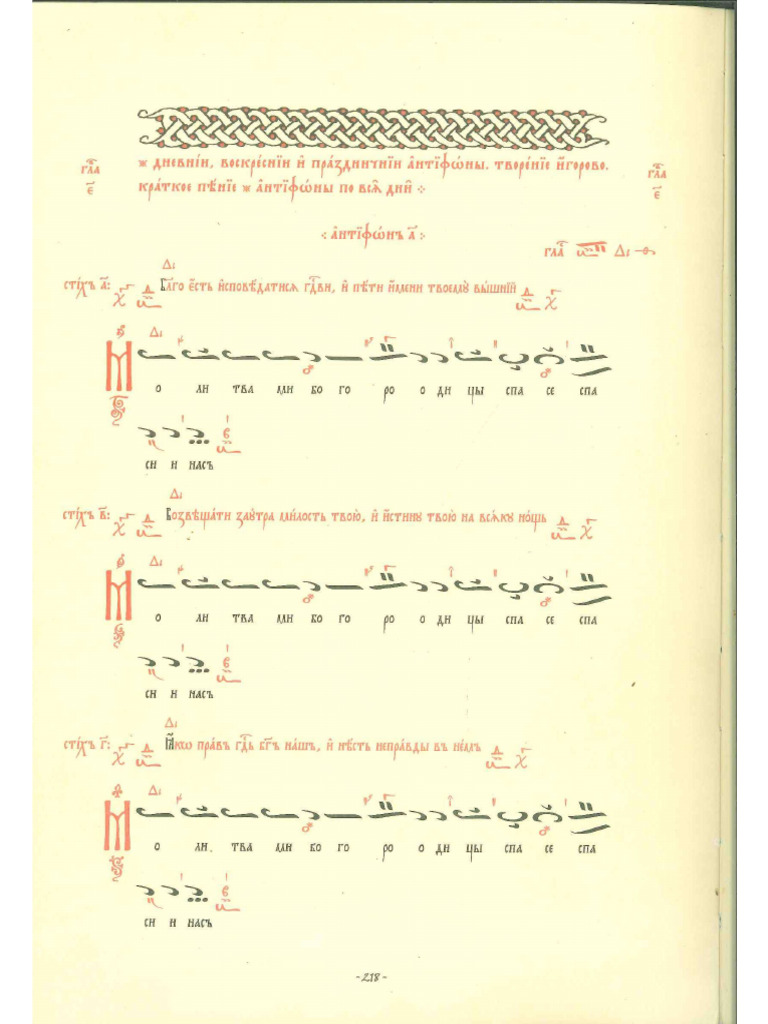 гла҃ е҃
ж дневнїи, воскре́снїи и҆ пра́здничнїи а҆нтїфѡ́ны. творе́нїе и҆́горово.
гла҃ е҃
кра́ткое пѣ́нїе ж а҆нтїфѡ́ны по всѧ̑ дни̑
а҆нтїфѡ́нъ а҃:
гла҃
сті́хъ а҃: Бл҃го є҆́сть и҆сповѣ́датисѧ гдⷭ҇ви, и҆ пѣ́ти и҆́мени твоемꙋ̀ вы́шнїй
М
о ли тва ми бо го ро о ди цы спа се спа
си и насъ
сті́хъ в҃: Возвѣща́ти заꙋ́тра ми́лость твою̀, и҆ и҆́стинꙋ твою̀ на всѧ́кꙋ но́щь
М
о ли тва ми бо го ро о ди цы спа се спа
си и насъ
сті́хъ г҃: Ꙗ҆́кѡ пра́въ гдⷭ҇ь бг҃ъ на́шъ, и҆ нѣ́сть непра́вды въ не́мъ
М
о ли. тва ми бо го ро о ди цы спа се спа
си и насъ
- 218 -